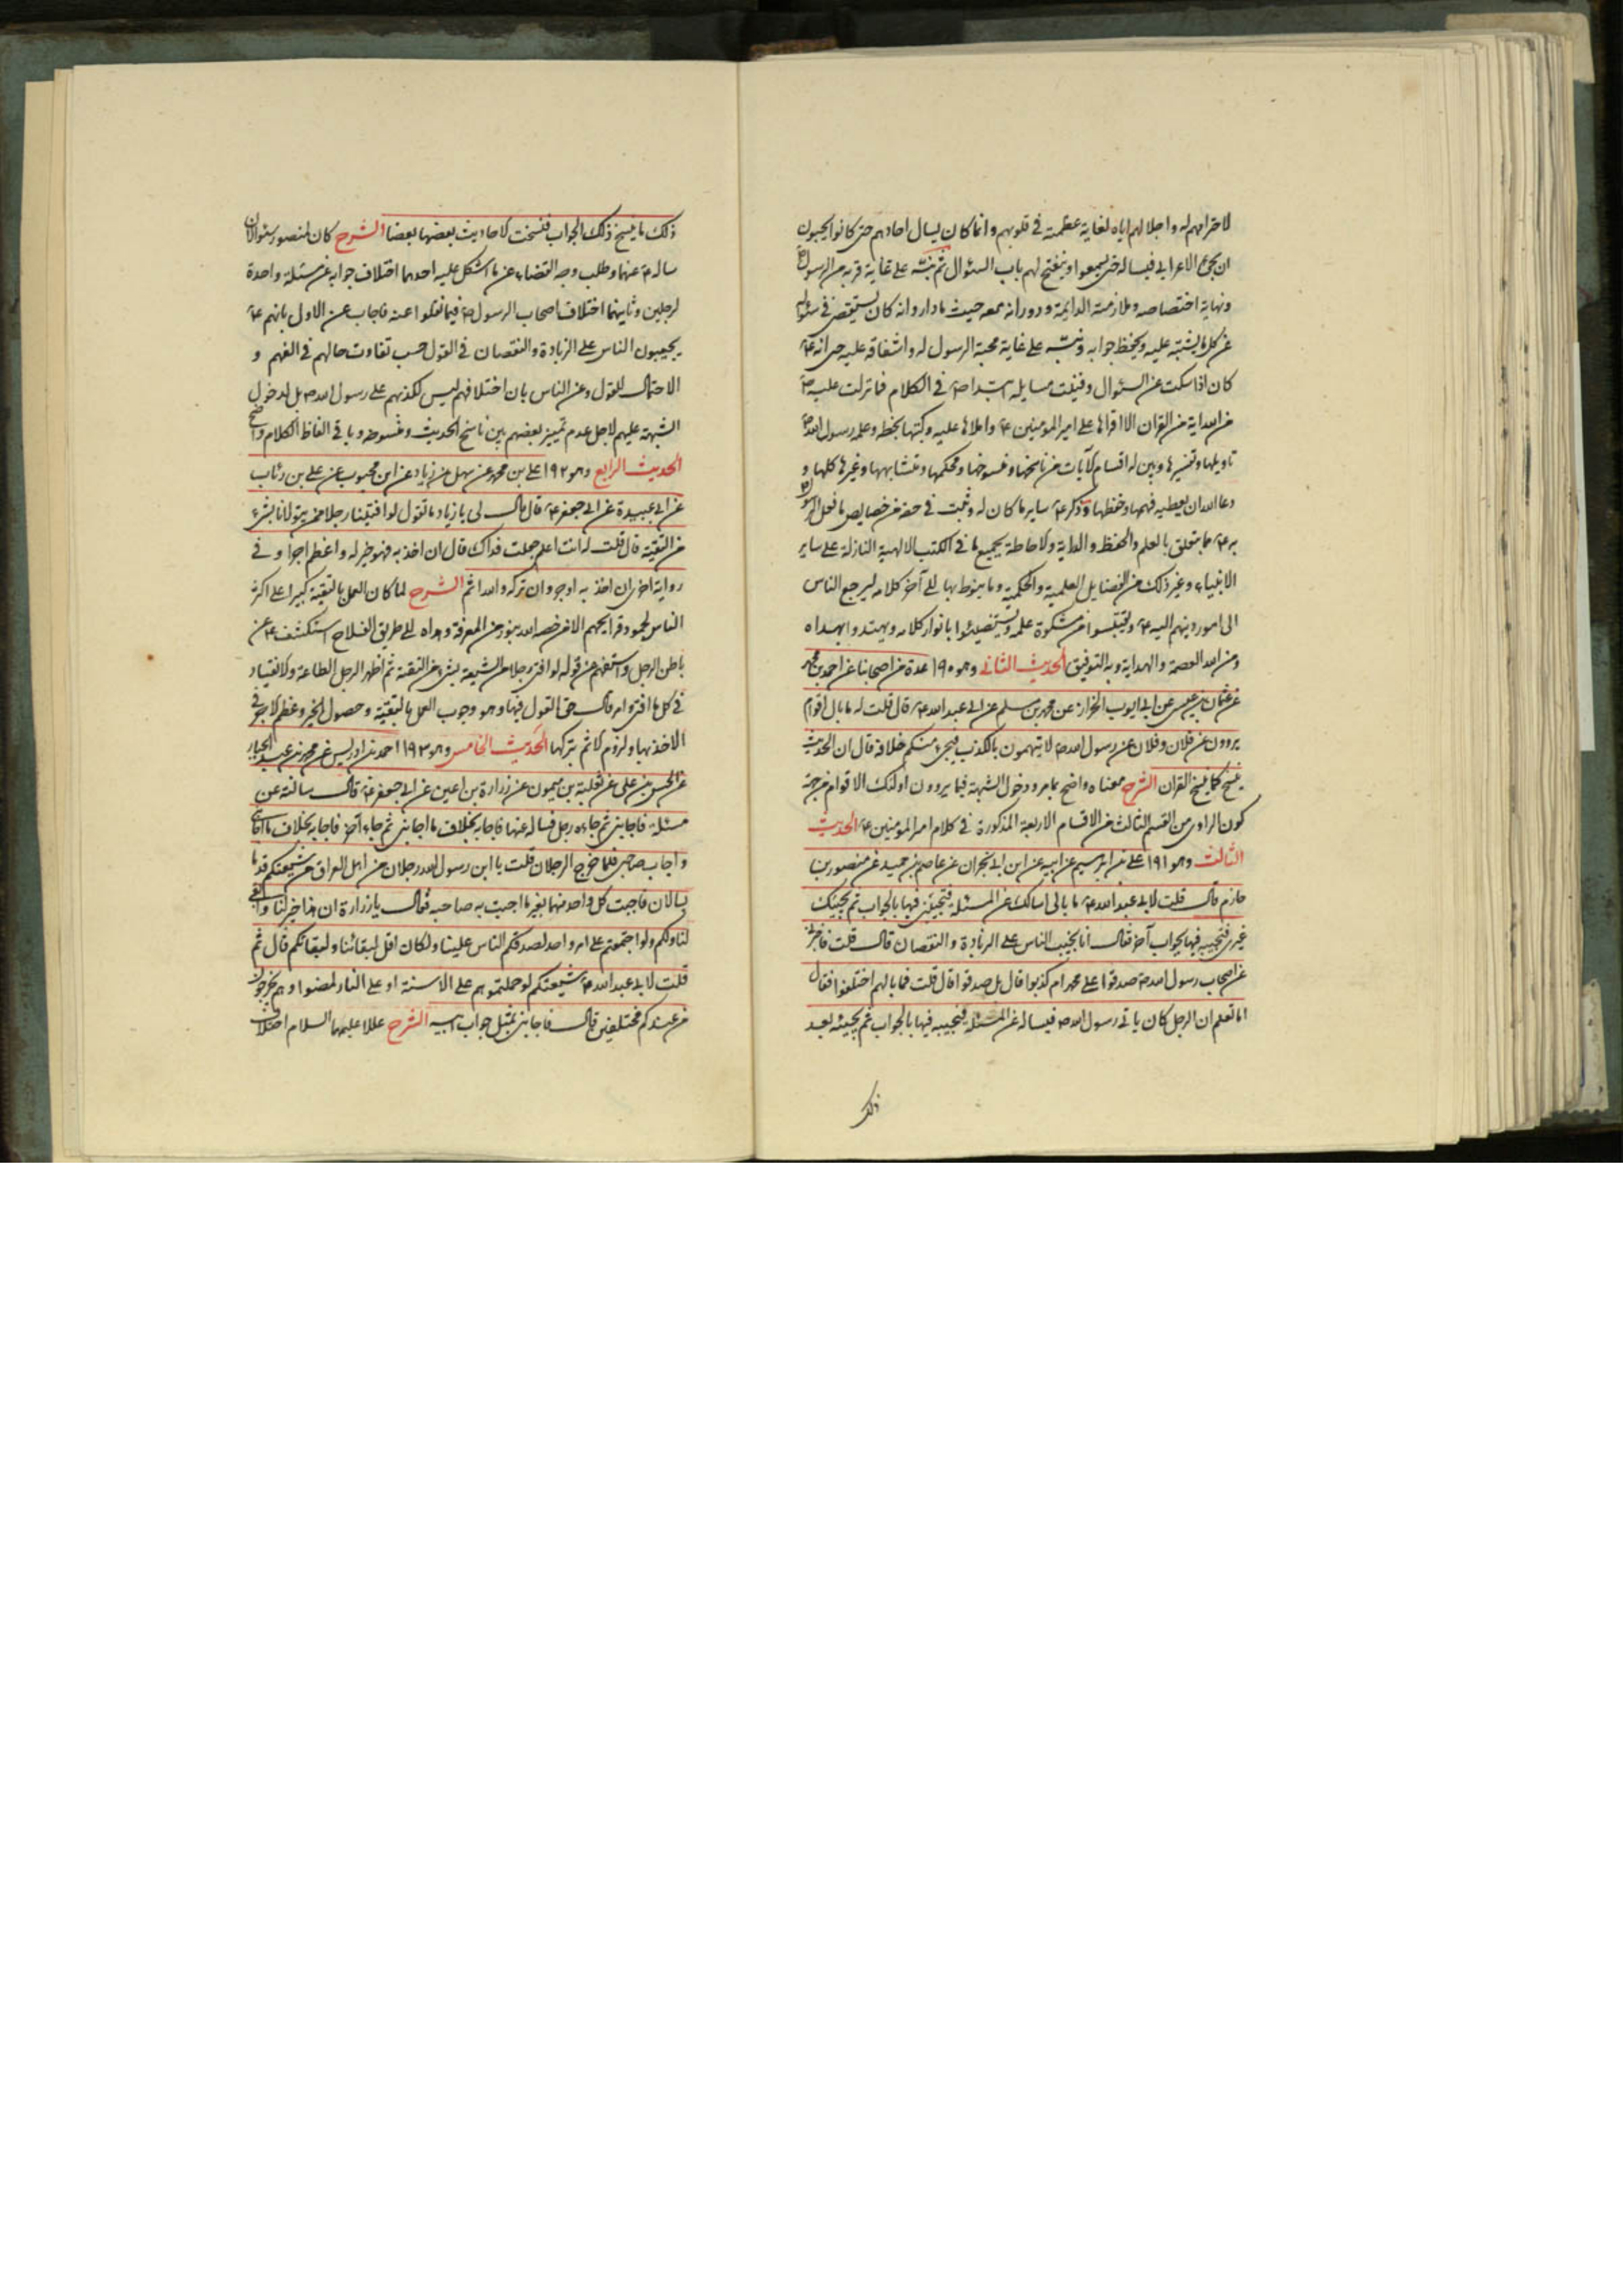 لاحترامهم له واجلالهم اياه لغاية عظمته فى قلوبهم وانما كان يسال احادهم حتى كانوا يحبون
ان يجئ الاعرابى فيساله حتى يسمعوا وينفتح لهم باب السئوال ثم نبه على غاية قربه من الرسول ص
ونهاية اختصاصه وملازمته الدائمة ودورانه معه حيث مادار وانه كان يستقصى فى سئواله
عن كل ما يشتبه عليه ويحفظ جوابه ونبه على غاية محبة الرسول له واشفاقه عليه حتى انه ع
كان اذا سكت عن السئوال وفنيت مسايله ابتدا ص فى الكلام فما نزلت عليه ص
من الله اية من القران الا اقراها على امير المؤمنين ع واملاها عليه وكتبها بخطه وعلمه رسول الله ص
تاويلها وتفسيرها وبين له اقسام الآيات من ناسخها ومنسوخها ومحكمها ومتشابهها وغيرها كلها و
دعا الله ان يعطيه فهمها وحفظها وذكر ع ساير ما كان له وثبت فى حقه من خصايص ما فعل الرسول ص
به ع مما يتعلق بالعلم والحفظ والدراية والاحاطة بجميع ما فى الكتب الالهية النازلة على ساير
الانبياء وغير ذلك من الفضايل العلمية والحكمية وما ينوط بها الى آخر كلامه ليرجع الناس
الى امور دينهم اليه ع ويقتبسوا من مشكوة علمه ويستضيئوا بانوار كلامه ويهتدوا بهداه
ومن الله العصمة والهداية وبه التوفيق الحديث الثانى وهو ١٩٠ عدة من اصحابنا عن احمد بن محمد
عن عثمان بن عيسى عن ابى ايوب الخزاز عن محمد بن مسلم عن ابى عبد الله ع قال قلت له ما بال اقوام
يروون عن فلان وفلان عن رسول الله ص لا يتهمون بالكذب فيجئ منكم خلافه قال ان الحديث
ينسخ كما ينسخ القران الشرح معناه واضح بما مر ودخول الشبهة فيما يروون اولئك الاقوام من جهة
كون الراوى من القسم الثالث من الاقسام الاربعة المذكورة فى كلام امير المؤمنين ع الحديث
الثالث وهو ١٩١ على بن ابرهيم عن ابيه عن ابن ابى نجران عن عاصم بن حميد عن منصور بن
حازم قال قلت لابى عبد الله ع ما بالى اسالك عن المسئلة فتجيبنى فيها بالجواب ثم يجيئك
غيرى فتجيبه فيها بجواب آخر فقال انا نجيب الناس على الزيادة والنقصان قال قلت فاخبرنى
عن اصحاب رسول الله ص صدقوا على محمد ام كذبوا قال بل صدقوا قال قلت فما بالهم اختلفوا فقال
اما تعلم ان الرجل كان ياتى رسول الله ص فيساله عن المسئلة فيجيبه فيها بالجواب ثم يجيئه بعد
ذلك
ذلك ما ينسخ ذلك الجواب فنسخت الاحاديث بعضها بعضا الشرح كان لمنصور سئوالان
ساله ع عنهما وطلب وجه التفصى عن ما اشكل عليه احدهما اختلاف جوابه عن مسئلة واحدة
لرجلين وثانيهما اختلاف اصحاب الرسول ص فيما نقلوا عنه فاجاب عن الاول بانهم ع
يجيبون الناس على الزيادة والنقصان فى القول حسب تفاوت حالهم فى الفهم و
الاحتمال للقول وعن الثانى بان اختلافهم ليس لكذبهم على رسول الله ص بل لدخول
الشبهة عليهم لاجل عدم تمييز بعضهم بين ناسخ الحديث ومنسوخه وباقى الفاظ الكلام واضح
الحديث الرابع وهو ١٩٢ على بن محمد عن سهل عن زياد عن ابن محبوب عن على بن رئاب
عن ابى عبيدة عن ابى جعفر ع قال قال لى يا زياد ما تقول لو افتينا رجلا ممن يتولانا بشئ
من التقية قال قلت له انت اعلم جعلت فداك قال ان اخذ به فهو خير له واعظم اجرا وفى
رواية اخرى ان اخذ به اوجر وان تركه والله اثم الشرح لما كان العمل بالتقية كبيرا على اكثر
الناس لجمود قرايحهم الا من خصه الله بنور من المعرفة وهداه الى طريق الفلاح استكشف ع عن
باطن الرجل واستفهم عن قوله لو افتى رجلا من الشيعة بشئ من التقية ثم اظهر الرجل الطاعة والانقياد
فى كل ما افتى وامر قال حق القول فيها وهو وجوب العمل بالتقية وحصول الخير وعظم الاجر فى
الاخذ بها ولزوم الاثم بتركها الحديث الخامس وهو ١٩٣ احمد بن ادريس عن محمد بن عبد الجبار
عن الحسن بن على عن ثعلبة بن ميمون عن زرارة بن اعين عن ابى جعفر ع قال سالته عن
مسئلة فاجابنى ثم جاءه رجل فساله عنها فاجابه بخلاف ما اجابنى ثم جاء آخر فاجابه بخلاف ما اجابنى
واجاب صاحبى فلما خرج الرجلان قلت يا ابن رسول الله رجلان من اهل العراق من شيعتكم قدما
يسالان فاجبت كل واحد منهما بغير ما اجبت به صاحبه فقال يا زرارة ان هذا خير لنا وابقى
لنا ولكم ولو اجتمعتم على امر واحد لصدقكم الناس علينا ولكان اقل لبقائنا ولبقائكم قال ثم
قلت لابى عبد الله ع شيعتكم لو حملتموهم على الاسنة او على النار لمضوا وهم يخرجون
من عندكم مختلفين قال فاجابنى بمثل جواب ابيه الشرح عللا عليهما السلام اختلاف